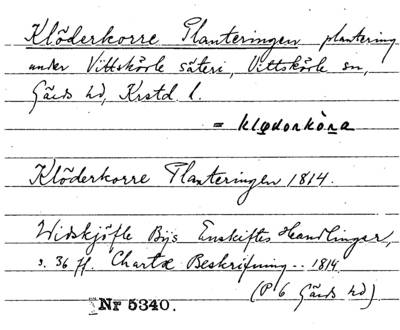 Klöderkorre Planteringen plantering
under Vittskövle säteri, Vittskövle sn,
Gärds hd, Krstd l.
= klǫdərkòra
Klöderkorre Planteringen 1814.
Widskjöfle Bÿs Enskiftes Handlingar,
s. 36 ff. Chartæ Beskrifning .. 1814
(P 6 Gärds hd)
Nr 5340.